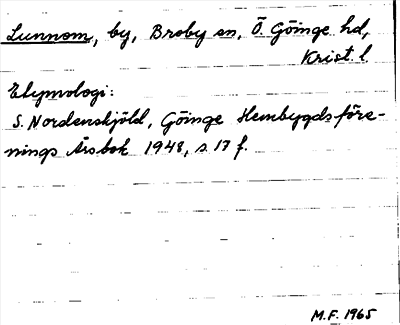 Lunnom, by, Broby sn, Ö. Göinge hd,
Krist. l.
Etymologi:
S. Nordenskjöld, Göinge Hembygdsföre-
nings Årsbok 1948, s. 17 f.
M.F. 1965